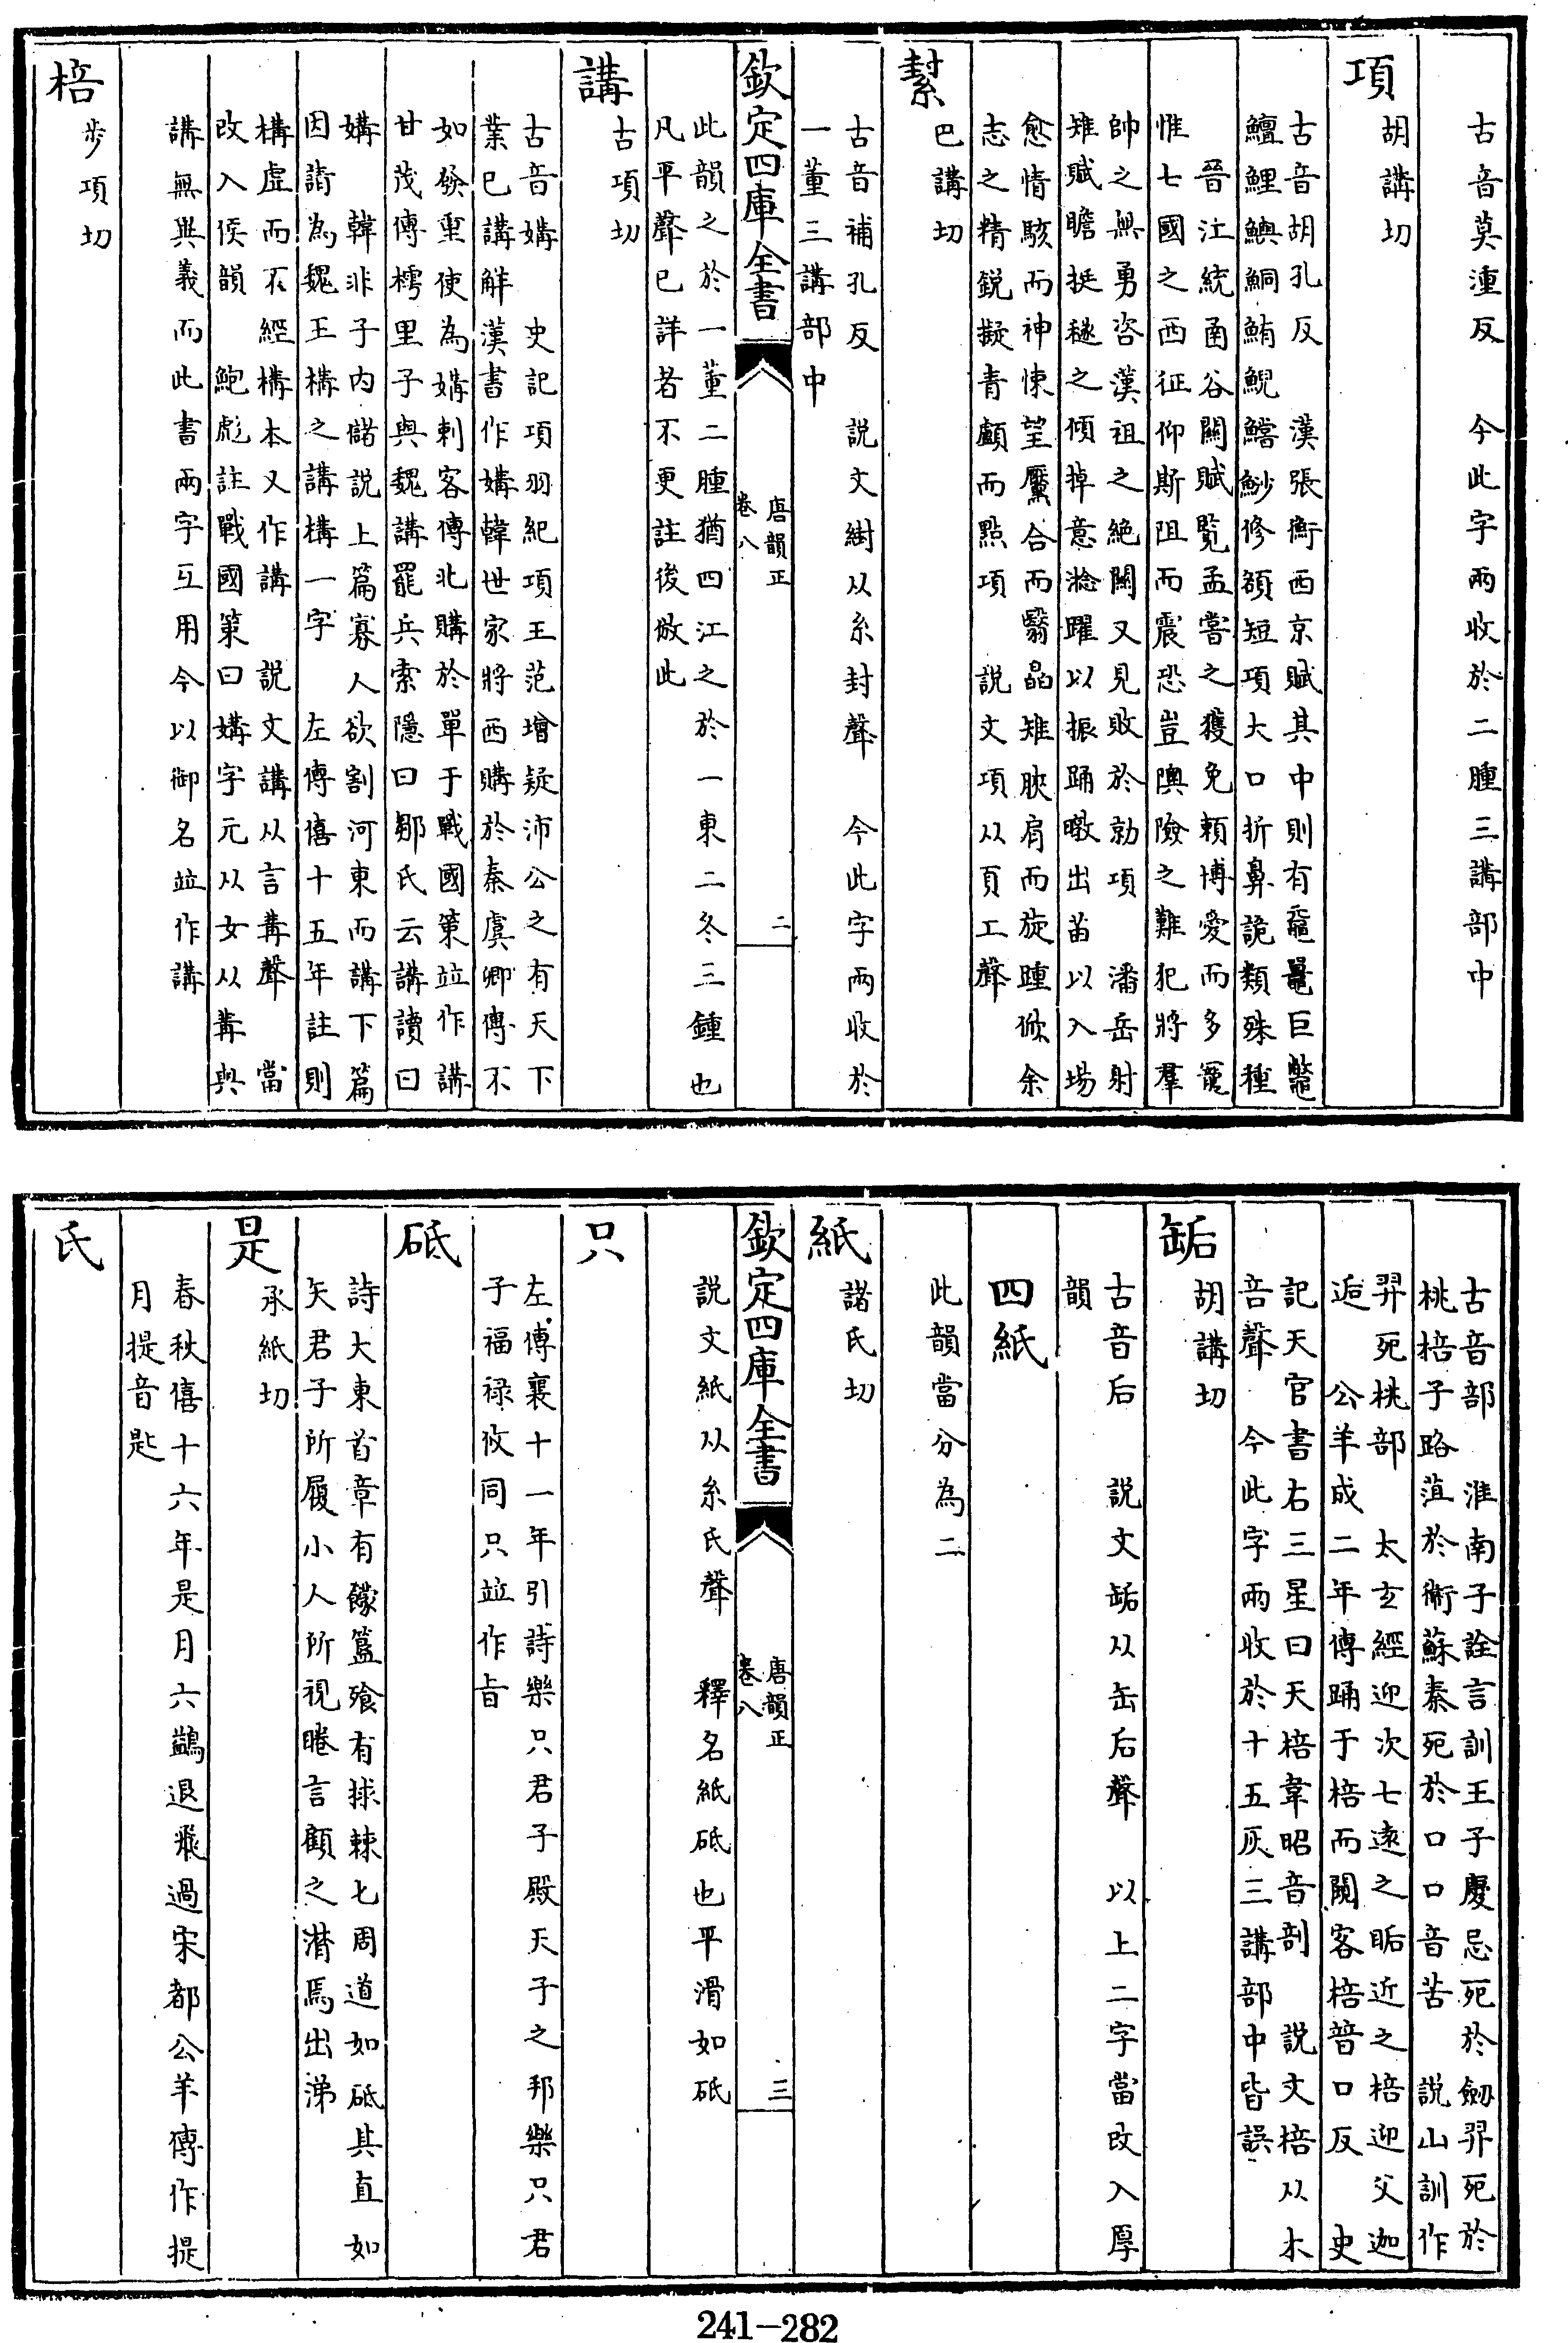 古音莫湩反　今此字兩收於二腫三講部中
項
胡講切
古音胡孔反　漢張衡西京賦其中則有黿鼉巨鼈
鱣鯉鱮鮦鮪鯢鱨魦修額短項大口折鼻詭類殊種
晉江統函谷關賦覽孟嘗之獲免賴博愛而多寵
惟七國之西征仰斯阻而震恐豈隩險之難犯將羣
帥之無勇咨漢祖之絶關又見敗於勍項　潘岳射
雉賦瞻挺穟之傾掉意淰躍以振踊暾出苗以入場
愈情駭而神悚望黶合而翳晶雉脥肩而旋踵俽余
志之精鋭擬青顱而點項　説文項从頁工聲
䋽
巴講切
古音補孔反　説文紨从糸封聲　今此字兩收於
一董三講部中
欽定四庫全書
唐韻正
卷八
二
此韻之於一董二腫猶四江之於一東二冬三鍾也
凡平聲已詳者不更註後倣此
講
古項切
古音媾　史記項羽紀項王范增疑沛公之有天下
業已講解漢書作媾韓世家將西購於秦虞卿傳不
如發重使為媾刺客傳北購於單于戰國策竝作講
甘茂傳樗里子與魏講罷兵索隱曰鄒氏云講讀曰
媾　韓非子内儲説上篇寡人欲割河東而講下篇
因請為魏王構之講構一字　左傳僖十五年註則
構虛而不經構本又作講　説文講从言冓聲　當
改入候韻　鮑彪註戰國策曰媾字元从女从冓與
講無異義而此書兩字互用今以御名竝作講
棓
步項切
古音部　淮南子詮言訓王子慶忌死於劒羿死於
桃棓子路菹於衛蘇秦死於口口音苦　説山訓作
羿死桃部　太玄經迎次七逺之眂近之棓迎父迦
逅　公羊成二年傳踊于棓而闚客棓普口反　史
記天官書右三星曰天棓韋昭音剖　説文棓从木
咅聲　今此字兩收於十五灰三講部中皆誤
缿
胡講切
古音后　説文缿从缶后聲　以上二字當改入厚
韻
四紙
此韻當分為二
紙
諸氏切
欽定四庫全書
唐韻正
卷八
三
説文紙从糸氏聲　釋名紙砥也平滑如砥
只
左傳襄十一年引詩樂只君子殿天子之邦樂只君
子福禄攸同只竝作旨
砥
詩大東首章有饛簋飱有捄棘匕周道如砥其直如
矢君子所履小人所視睠言顧之潸焉出涕
是
承紙切
春秋僖十六年是月六鷁退飛過宋都公羊傳作提
月提音匙
氏
241—282